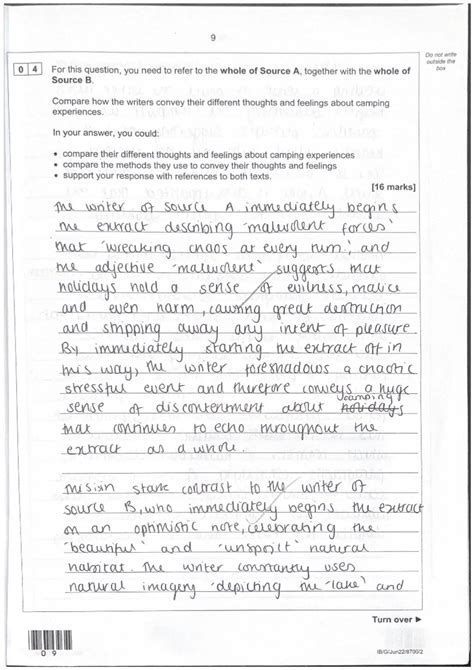 9
Do not write
outside the
box
0 4 For this question, you need to refer to the whole of Source A, together with the whole of
Source B.
Compare how the writers convey their different thoughts and feelings about camping
experiences.
In your answer, you could:
• compare their different thoughts and feelings about camping experiences
• compare the methods they use to convey their thoughts and feelings
• support your response with references to both texts.
[16 marks]
The writer of source A immediately begins
the extract describing 'malevolent forces'
that 'wreaking chaos at every turn', and
the adjective 'malevolent' suggests that
holidays hold a sense of evilness, malice
and even harm, causing great destruction
and stripping away any intent of pleasure.
By immediately starting the extract off in
this way, the writer foreshadows a chaotic
stressful event and therefore conveys a huge
camping
sense of discontentment about holidays
that continues to echo throughout the
extract as a whole.
This is in stark contrast to the writer of
source B, who immediately begins the extract
on an optimistic note, celebrating the
'beautiful' and 'unspoilt' natural
habitat. The writer constantly uses
natural imagery depicting the 'lake' and
Turn over ►
0 9
IB/G/Jun22/8700/2